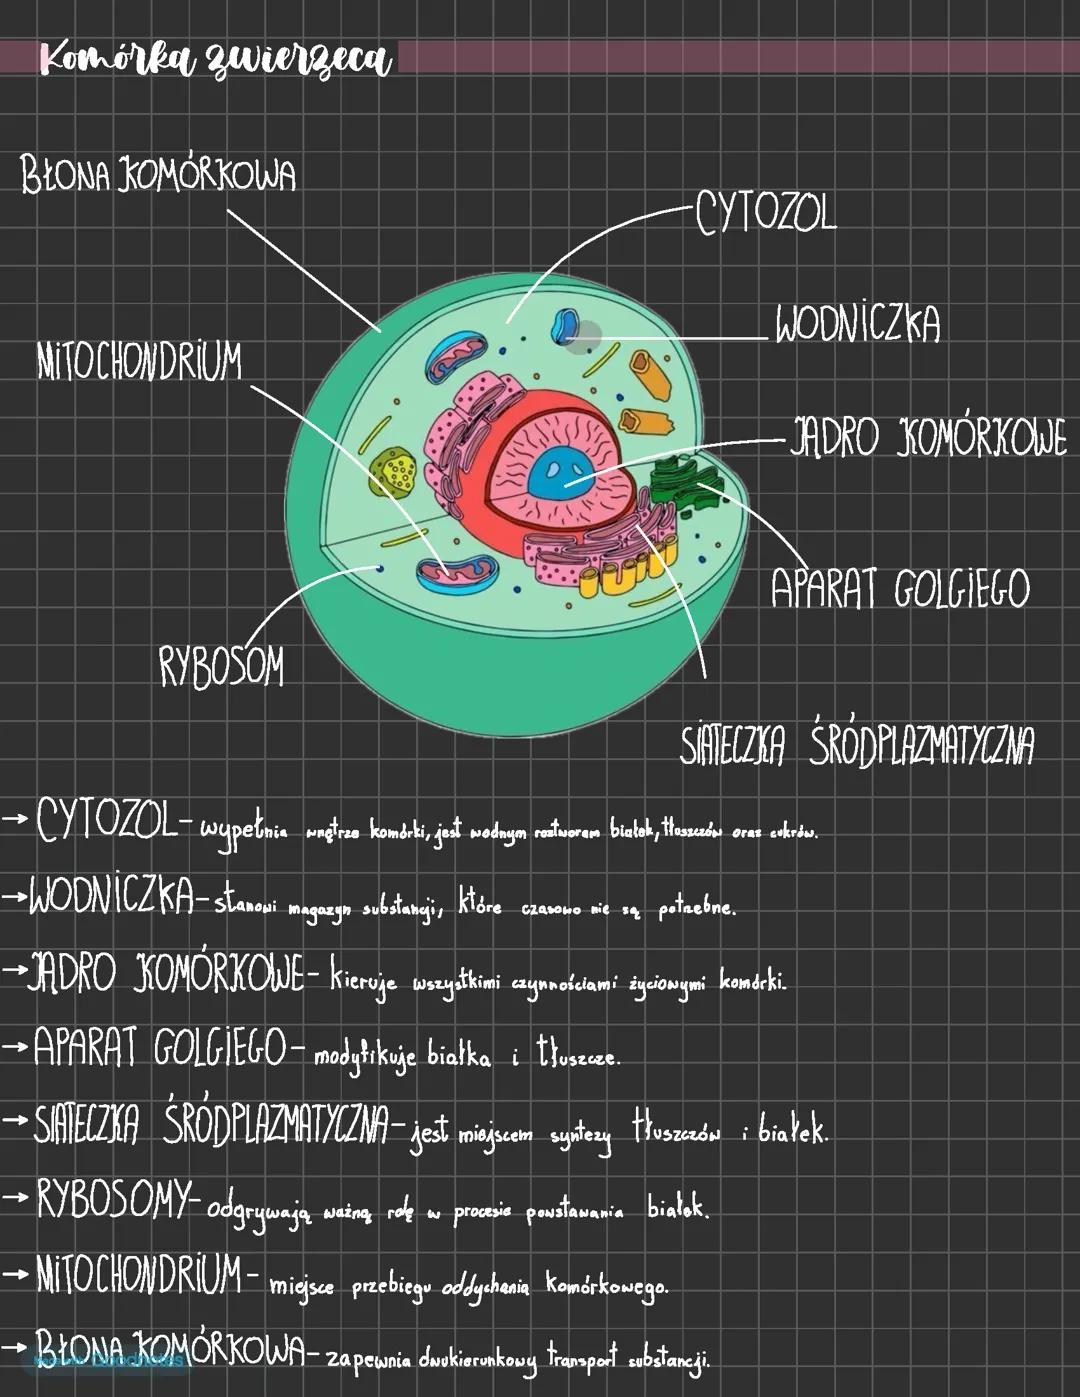 Komórka zwierzeca
BŁONA KOMÓRKOWA
CYTOZOL
WODNICZKA
MITOCHONDRIUM
JĄDRO KOMÓRKOWE
APARAT GOLGIEGO
RYBOSOM
SIATECZKA ŚRÓDPLAZMATYCZNA
→ CYTOZOL- wypełnia wnętrze komórki, jest wodnym roztworem białek, tłuszczów oraz cukrów.
→ WODNICZKA- stanowi magazyn substancji, które czasowo nie są potrzebne.
→ JĄDRO KOMÓRKOWE- kieruje wszystkimi czynnościami życiowymi komórki.
→ APARAT GOLGIEGO- modyfikuje białka i tłuszcze.
→ SIATECZKA ŚRÓDPLAZMATYCZNA- jest miejscem syntezy tłuszczów i białek.
→ RYBOSOMY- odgrywają ważną rolę w procesie powstawania białek.
→ MITOCHONDRIUM- miejsce przebiegu oddychania komórkowego.
→ BŁONA KOMÓRKOWA- zapewnia dwukierunkowy transport substancji.
Made with Goodnotes